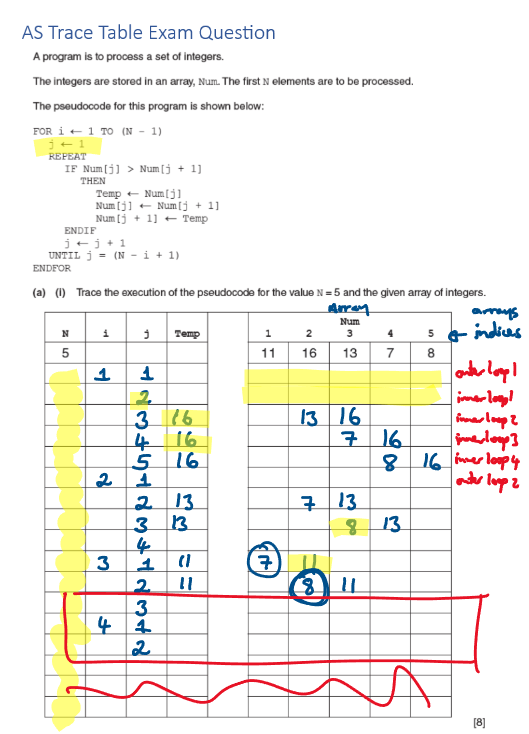 AS Trace Table Exam Question
A program is to process a set of integers.
The integers are stored in an array, Num. The first N elements are to be processed.
The pseudocode for this program is shown below:
FOR i ← 1 TO (N - 1)
j ← 1
REPEAT
IF Num[j] > Num[j + 1]
THEN
Temp ← Num[j]
Num[j] ← Num[j + 1]
Num[j + 1] ← Temp
ENDIF
j ← j + 1
UNTIL j = (N - i + 1)
ENDFOR
(a) (i) Trace the execution of the pseudocode for the value N = 5 and the given array of integers.
Array arrays
Num
N i j Temp 1 2 3 4 5 ← indices
5 11 16 13 7 8
1 1 outer loop 1
2 inner loop 1
3 16 13 16 inner loop 2
4 16 7 16 inner loop 3
5 16 8 16 inner loop 4
2 1 outer loop 2
2 13 7 13
3 13 8 13
4
3 1 11 7 11
2 11 8 11
3
4 1
2
[8]